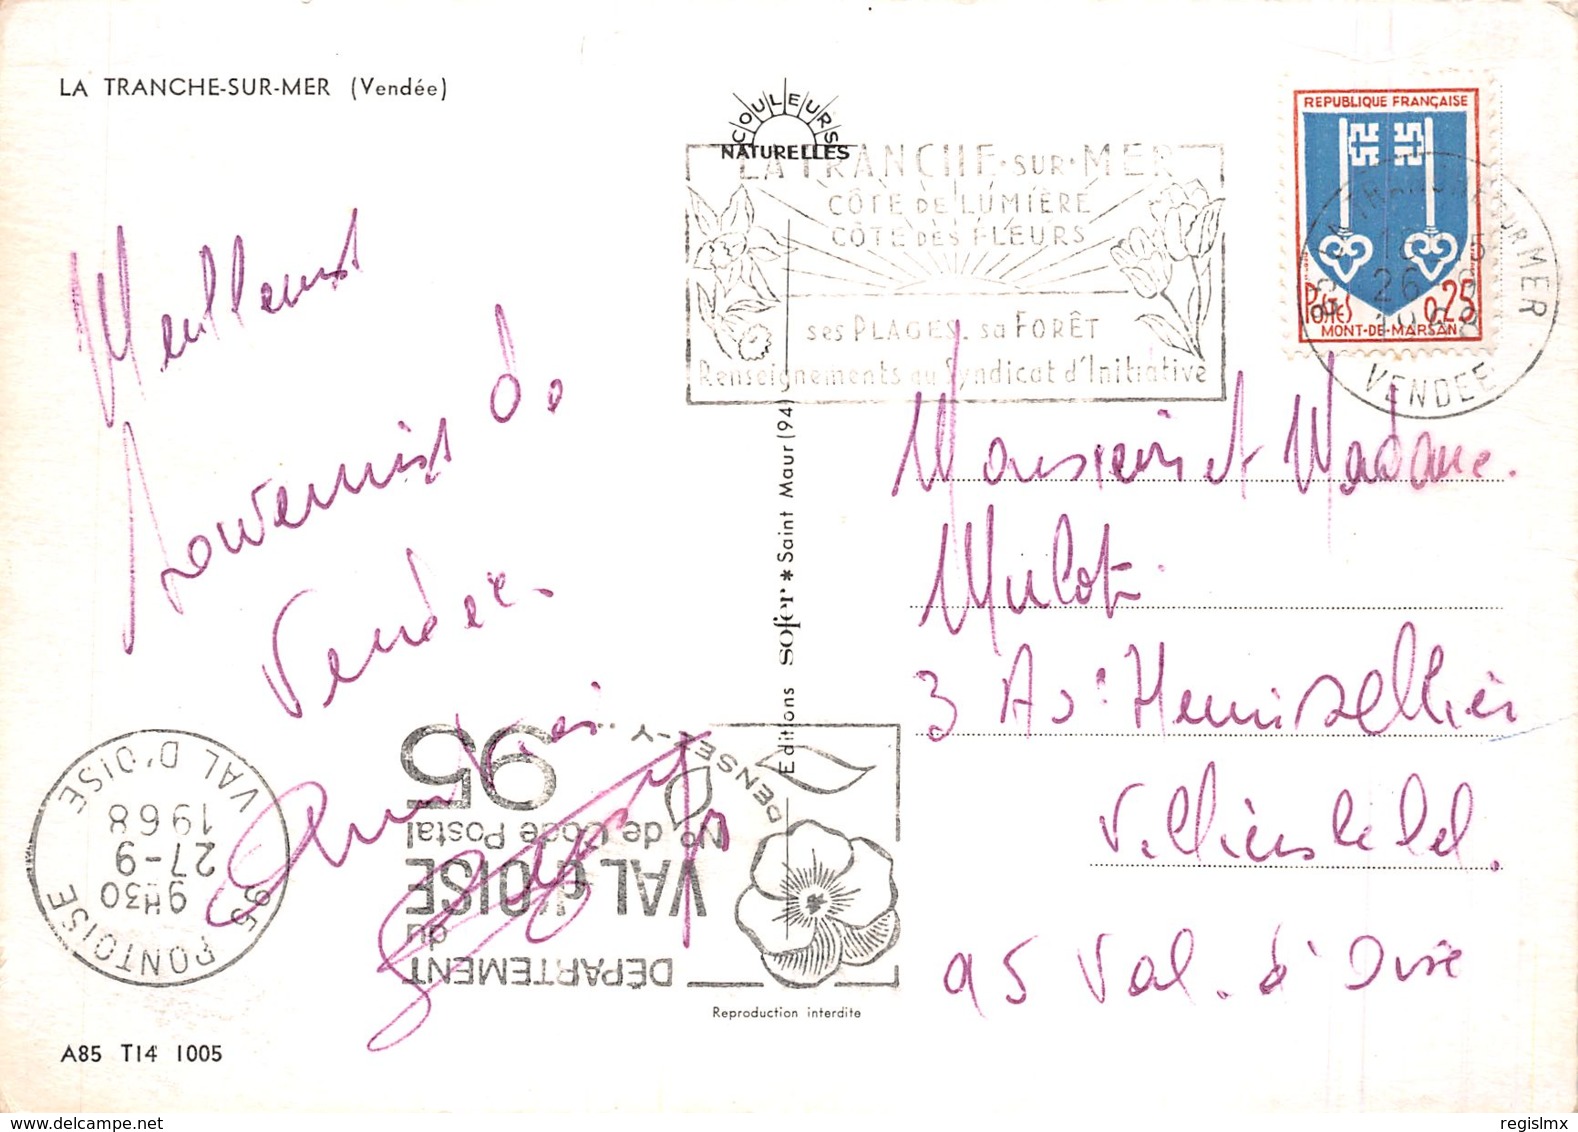 LA TRANCHE-SUR-MER (Vendée)
COULEURS
NATURELLES
LA TRANCHE-SUR-MER
CÔTE DE LUMIÈRE
CÔTE DES FLEURS
ses PLAGES. sa FORÊT
Renseignements au Syndicat d'Initiative
REPUBLIQUE FRANÇAISE
POSTES 0,25
MONT-DE-MARSAN
LA TRANCHE SUR MER
26
VENDEE
Meilleurs
Souvenirs de
Vendée.
Monsieur et Madame.
Mulot.
3 Av. Henri
Villiers le Bel.
95 Val. d'Oise
Editions sofer * Saint Maur (94)
95 PONTOISE
9H30
27-9
1968
VAL D'OISE
DÉPARTEMENT
du
VAL d'OISE
No de Code Postal
95
PENSEZ-Y...
Reproduction interdite
A85 T14 1005
www.delcampe.net
regislmx